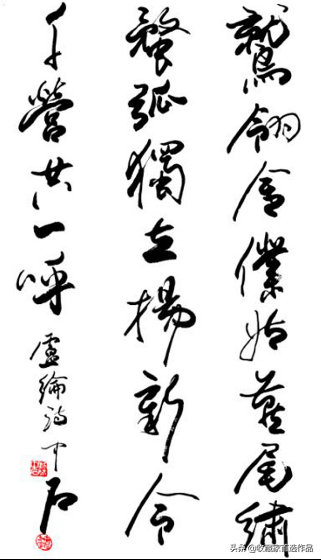 鷲翎金僕姑燕尾繡
蝥弧獨立揚新令
千營共一呼
盧綸詩 中石
头条 @收藏家直选作品